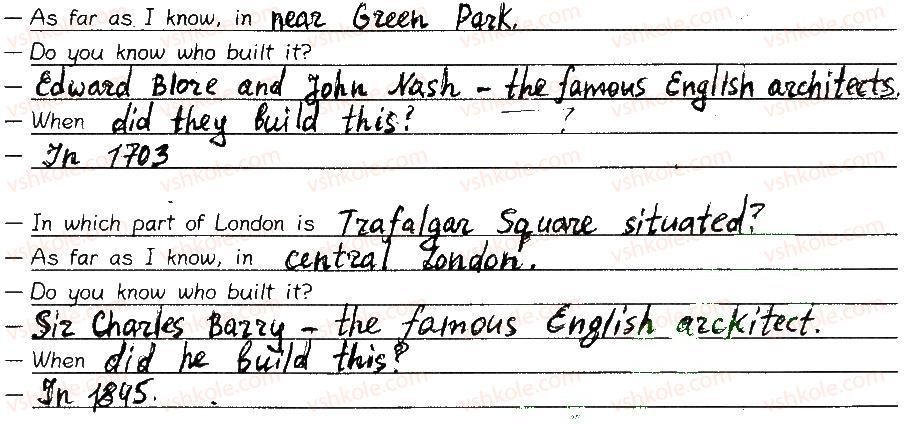 — As far as I know, in near Green Park.
— Do you know who built it?
— Edward Blore and John Nash - the famous English architects.
— When did they build this? ?
— In 1703
— In which part of London is Trafalgar Square situated?
— As far as I know, in central London.
— Do you know who built it?
— Sir Charles Barry - the famous English arckitect.
— When did he build this?
— In 1845.